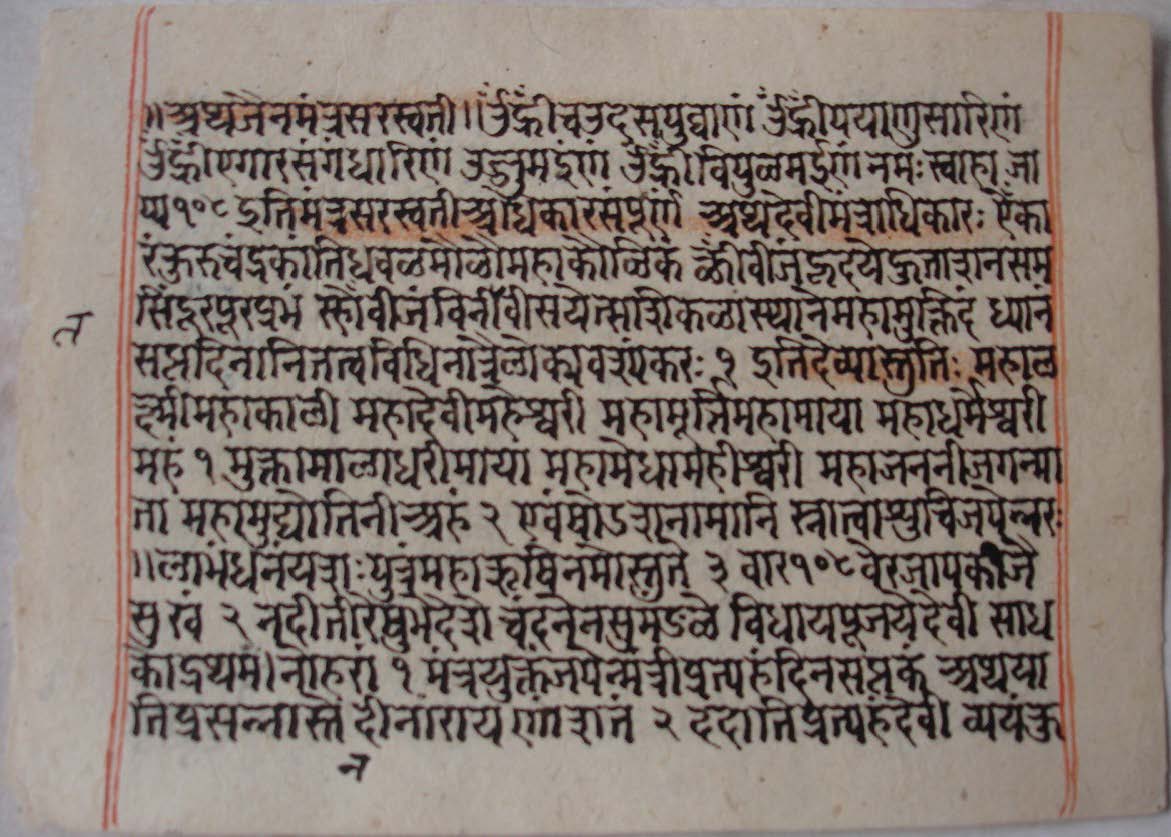 ॥अथजैनमंत्रसरस्वती॥ ॐह्रीचउदसपुव्वाणं ॐह्रीपयाणुसारिणं
ॐह्रीएगारसंगधारिणं उज्जुमईणं ॐह्रीविपुळमईणं नमःस्वाहा जा
प्य१०८ इतिमंत्रसरस्वतीअधिकारसंपूर्ण अथदेवीमंत्राधिकारः ऐंका
रंकुरुचंद्रकांतिधवळंमौळौमहाकौळिकं क्लींवीजंहृदये
सिंदूरपूरप्रभं वीजं महामुक्तिदं ध्यानं
सप्तदिनानितत्वविधिनात्रैळोक्यवश्यंकरः १ इतिदेव्यास्तुतिः महाळ
क्ष्मीमहाकाळी महादेवीमहेश्वरी महामूर्त्तिमहामाया महाधर्मेश्वरी
महं १ मुक्तामाळाधरीमाया महामेधामहीश्वरी महाजननीजगन्मा
ता महामुद्योतिनीअहं २ एवंषोडशनामानि स्नात्वाशुचिजपेन्नरः
॥लाभंधनंयशःपुत्रंमहाऋषिनमोस्तुते ३ वार१०८वेरजापकीजै
सुखं २ नदीतीरेषुभेदेशे चंदनेनसुमंडळे विधायपूजयेदेवी साध
१ मंत्रयुक्तंजपेन्मंत्रीप्रत्यहंदिनसप्तकं अथया
तिप्रसन्नास्ते दीनांरायणंशतं २ ददातिप्रत्यहंदेवी व्ययंकु
त
न